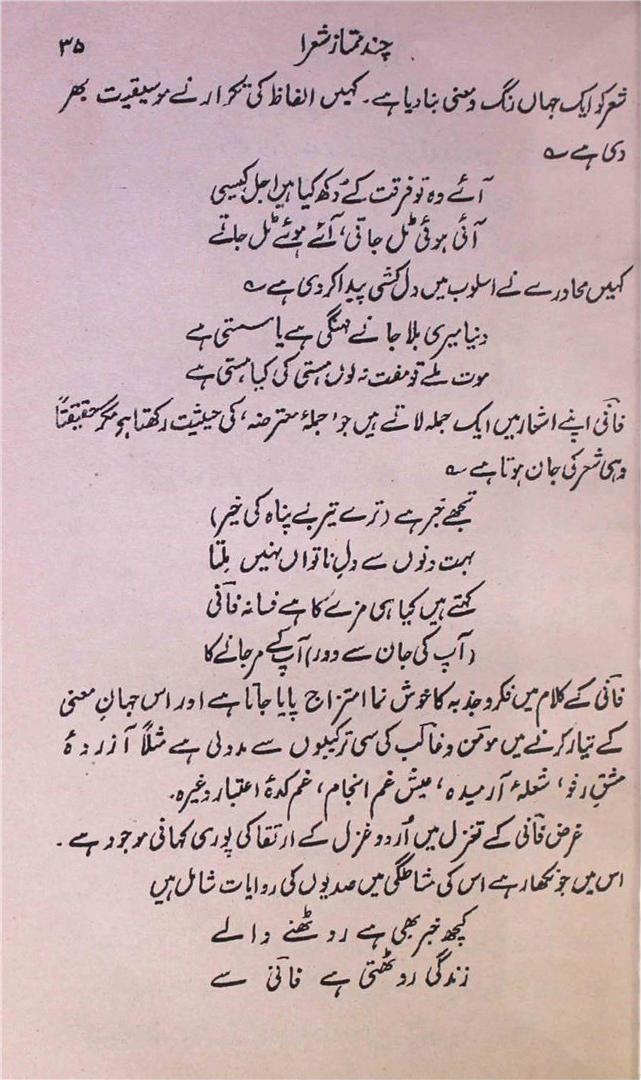 چند ممتاز شعرا ۳۵
شعر کو ایک جہاں رنگ و معنی بنا دیا ہے۔ کہیں الفاظ کی تکرار نے موسیقیت بھر
دی ہے ؎
آئے وہ تو فرقت کے دُکھ کیا ہیں اجل کیسی
آئی ہوئی ٹل جاتی، آئے ہوئے ٹل جاتے
کہیں محاورے نے اسلوب میں دل کشی پیدا کر دی ہے ؎
دنیا میری بلا جانے مہنگی ہے یا سستی ہے
موت ملے تو مفت نہ لوں ہستی کی کیا ہستی ہے
فانی اپنے اشعار میں ایک جملہ لاتے ہیں جو 'جملۂ معترضہ' کی حیثیت رکھتا ہے مگر حقیقتاً
وہی شعر کی جان ہوتا ہے ؎
تجھے خبر ہے (ترے تیرِ بے پناہ کی خیر)
بہت دنوں سے دلِ ناتواں نہیں ملتا
کہتے ہیں کیا ہی مزے کا ہے فسانہ فانی
(آپ کی جان سے دور) آپ کے مر جانے کا
فانی کے کلام میں فکر و جذبہ کا خوش نما امتزاج پایا جاتا ہے اور اس جہانِ معنی
کے تیار کرنے میں مومن و غالب کی سی ترکیبوں سے مدد لی ہے مثلاً آزردۂ
مشقِ رفو، شعلۂ آرمیدہ، عیشِ غم انجام، غم کدۂ اعتبار وغیرہ۔
غرض فانی کے تغزل میں اُردو غزل کے ارتقا کی پوری کہانی موجود ہے۔
اس میں جو نکھار ہے اس کی مشاطگی میں صدیوں کی روایات شامل ہیں
کچھ خبر بھی ہے روٹھنے والے
زندگی روٹھتی ہے فانی سے